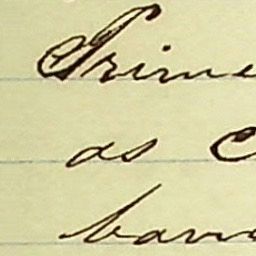 Prime
as c
ban